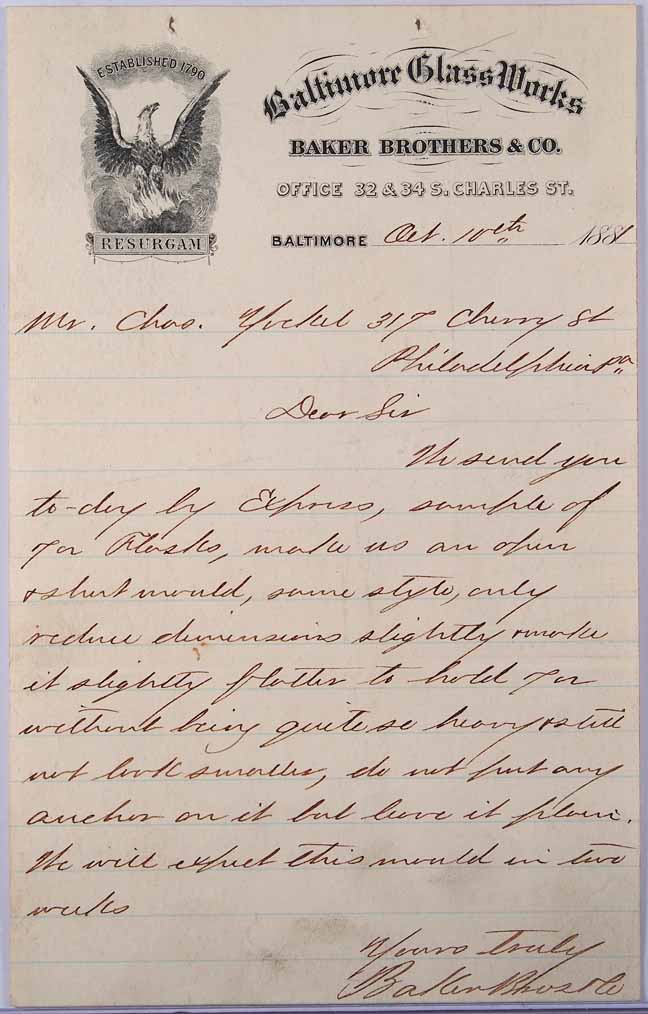 ESTABLISHED 1790
RESURGAM
Baltimore Glass Works
BAKER BROTHERS & CO.
OFFICE 32 & 34 S. CHARLES ST.
BALTIMORE Oct. 10th 1881
Mr. Chas. Yockel 317 Cherry St
Philadelphia Pa
Dear Sir
We send you
to-day by Express, sample of
7 oz Flasks, make us an open
& shut mould, same style, only
reduce dimensions slightly & make
it slightly flatter to hold 7 oz
without being quite so heavy & still
not look smaller, do not put any
anchor on it but leave it plain.
We will expect this mould in two
weeks
Yours truly
Baker Bros & Co